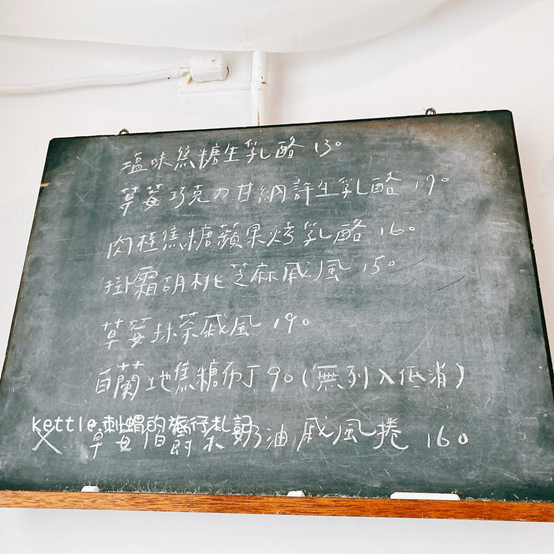 塩味焦糖生乳酪 130
草莓巧克力甘納許生乳酪 190
肉桂焦糖蘋果烤乳酪 160
掛霜胡桃芝麻戚風 150
草莓抹茶戚風 190
白蘭地焦糖布丁 90(無列入低消)
kettle.刺蝟的旅行札記
X 草莓伯爵茶奶油戚風捲 160